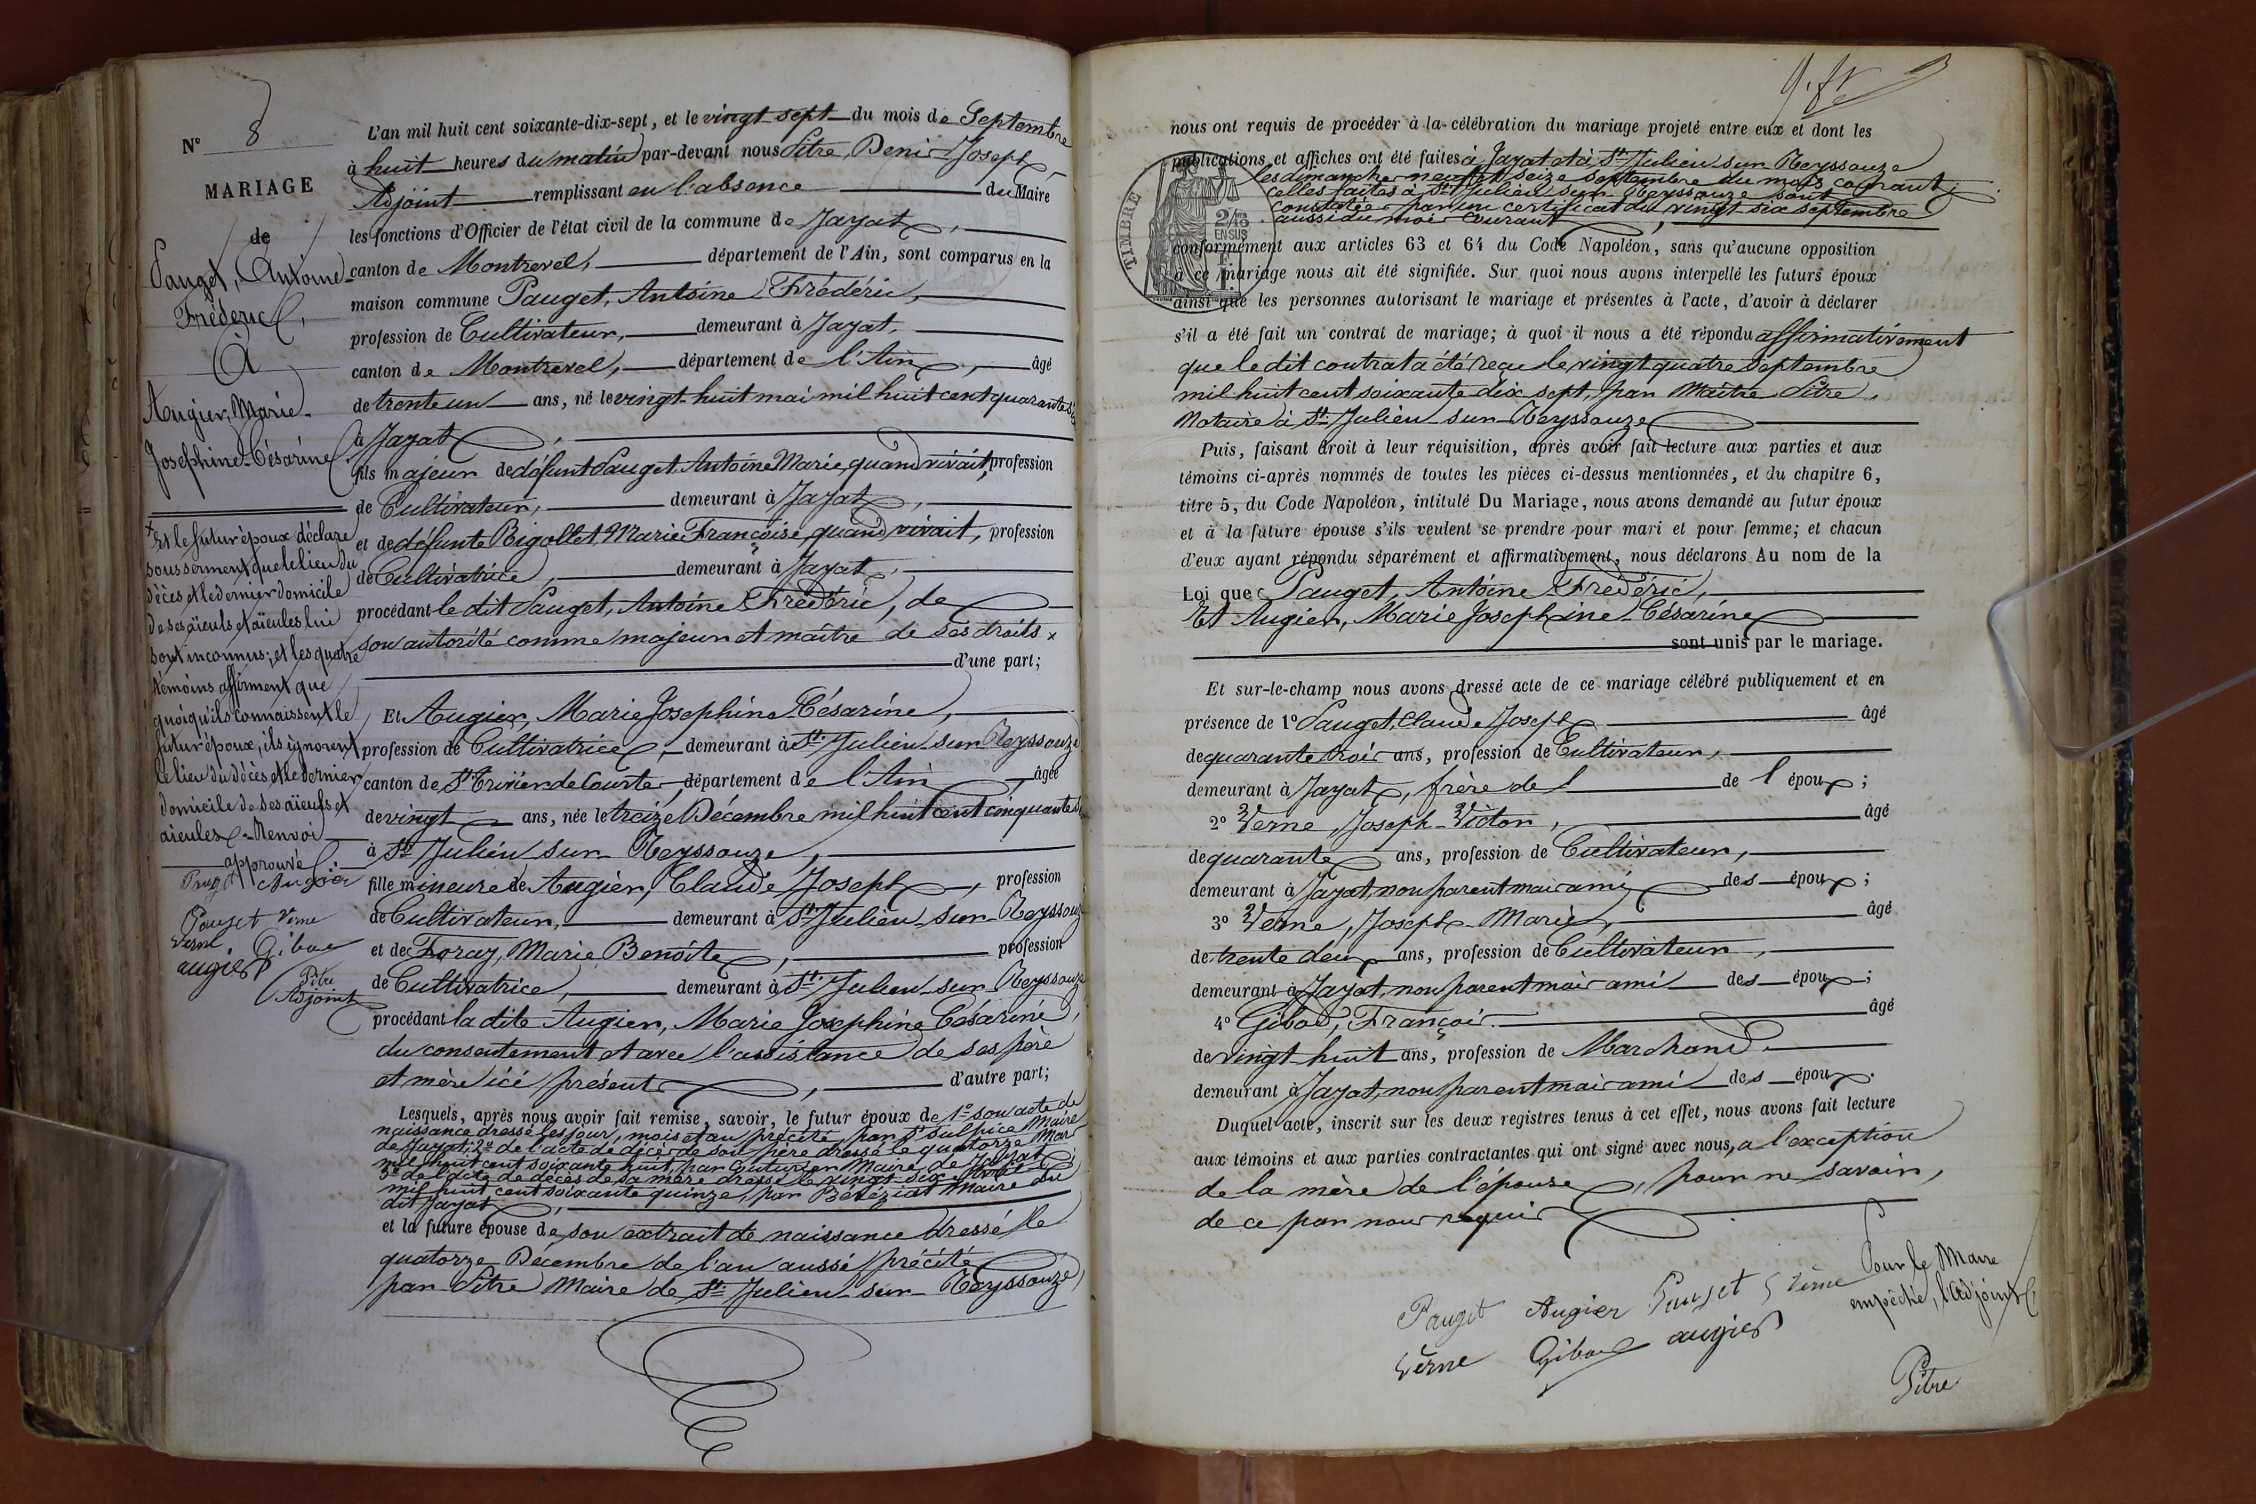 N° 8
MARIAGE
de
Pauget, Antoine
Frédéric,
&
Augier, Marie
Josephine-Césarine
X Et le futur époux déclare
sous serment que le lieu du
décès et le dernier domicile
de ses aïeuls et aïeules lui
sont inconnus; et les quatre
témoins affirment que
quoiqu'ils connaissent le
futur époux, ils ignorent
le lieu du décès et le dernier
domicile de ses aïeuls et
aïeules. Renvoi
approuvé
Augier
Pauget Verne
Verne. Gibod
augier
Pitre
Adjoint
L'an mil huit cent soixante-dix-sept, et le vingt-sept du mois de Septembre
à huit heures du matin par-devant nous Pitre, Denis Joseph
Adjoint remplissant en l'absence du Maire
les fonctions d'Officier de l'état civil de la commune de Jayat,
canton de Montrevel, département de l'Ain, sont comparus en la
maison commune Pauget, Antoine Frédéric,
profession de Cultivateur, demeurant à Jayat,
canton de Montrevel, département de l'Ain, âgé
de trente un ans, né le vingt-huit mai mil huit cent quarante six
à Jayat,
fils majeur de défunt Pauget Antoine Marie, quand vivait, profession
de Cultivateur, demeurant à Jayat,
et de défunte Rigollet, Marie Françoise, quand vivait, profession
de Cultivatrice, demeurant à Jayat,
procédant le dit Pauget, Antoine Frédéric, de
son autorité comme majeur et maître de ses droits x
d'une part;
Et Augier, Marie Josephine-Césarine,
profession de Cultivatrice, demeurant à St. Julien-sur-Reyssouze
canton de St. Trivier de Courtes, département de l'Ain, âgée
de vingt ans, née le treize Décembre mil huit cent cinquante six
à St. Julien-sur-Reyssouze,
fille mineure de Augier, Claude Joseph, profession
de Cultivateur, demeurant à St. Julien-sur-Reyssouze
et de Foray, Marie Benoîte, profession
de Cultivatrice, demeurant à St. Julien-sur-Reyssouze
procédant la dite Augier, Marie Josephine Césarine,
du consentement et avec l'assistance de ses père
et mère ici présents, d'autre part;
Lesquels, après nous avoir fait remise, savoir, le futur époux de 1° son acte de
naissance dressé les jour, mois et an précités, par St Sulpice Maire
de Jayat; 2° de l'acte de décès de son père dressé le quatorze Mars
mil huit cent soixante huit, par Couturier Maire de Jayat;
3° de l'acte de décès de sa mère dressé le vingt-six Avril
mil huit cent soixante quinze, par Béréziat Maire du
dit Jayat,
et la future épouse de son extrait de naissance dressé le
quatorze Décembre de l'an aussi précité
par Pitre Maire de St. Julien-sur-Reyssouze
nous ont requis de procéder à la célébration du mariage projeté entre eux et dont les
publications et affiches ont été faites à Jayat et à St. Julien sur Reyssouze
les dimanches neuf et seize septembre du mois courant;
celles faites à St. Julien sur Reyssouze sont
constatées par un certificat du vingt six septembre
aussi du mois courant,
TIMBRE
2/10es
EN SUS
1 F.
conformément aux articles 63 et 64 du Code Napoléon, sans qu'aucune opposition
à ce mariage nous ait été signifiée. Sur quoi nous avons interpellé les futurs époux
ainsi que les personnes autorisant le mariage et présentes à l'acte, d'avoir à déclarer
s'il a été fait un contrat de mariage; à quoi il nous a été répondu affirmativement
que le dit contrat a été reçu le vingt quatre septembre
mil huit cent soixante dix sept, par Maître Pitre,
Notaire à St. Julien-sur-Reyssouze
Puis, faisant droit à leur réquisition, après avoir fait lecture aux parties et aux
témoins ci-après nommés de toutes les pièces ci-dessus mentionnées, et du chapitre 6,
titre 5, du Code Napoléon, intitulé Du Mariage, nous avons demandé au futur époux
et à la future épouse s'ils veulent se prendre pour mari et pour femme; et chacun
d'eux ayant répondu séparément et affirmativement, nous déclarons Au nom de la
Loi que Pauget, Antoine Frédéric,
Et Augier, Marie Josephine-Césarine
sont unis par le mariage.
Et sur-le-champ nous avons dressé acte de ce mariage célébré publiquement et en
présence de 1° Pauget, Claude Joseph âgé
de quarante trois ans, profession de Cultivateur,
demeurant à Jayat, frère de l de l époux;
2° Verne, Joseph-Victor, âgé
de quarante ans, profession de Cultivateur,
demeurant à Jayat, non parent mais ami des époux;
3° Verne, Joseph-Marie, âgé
de trente deux ans, profession de Cultivateur,
demeurant à Jayat, non parent mais ami des époux;
4° Gibod, François âgé
de vingt-huit ans, profession de Marchand,
demeurant à Jayat, non parent mais ami des époux.
Duquel acte, inscrit sur les deux registres tenus à cet effet, nous avons fait lecture
aux témoins et aux parties contractantes qui ont signé avec nous, a l'exception
de la mère de l'épouse, pour ne savoir,
de ce par nous requis
Pour le Maire
empêché, l'Adjoint
Pauget Augier Pauget Verne
Verne Gibod augier
Pitre